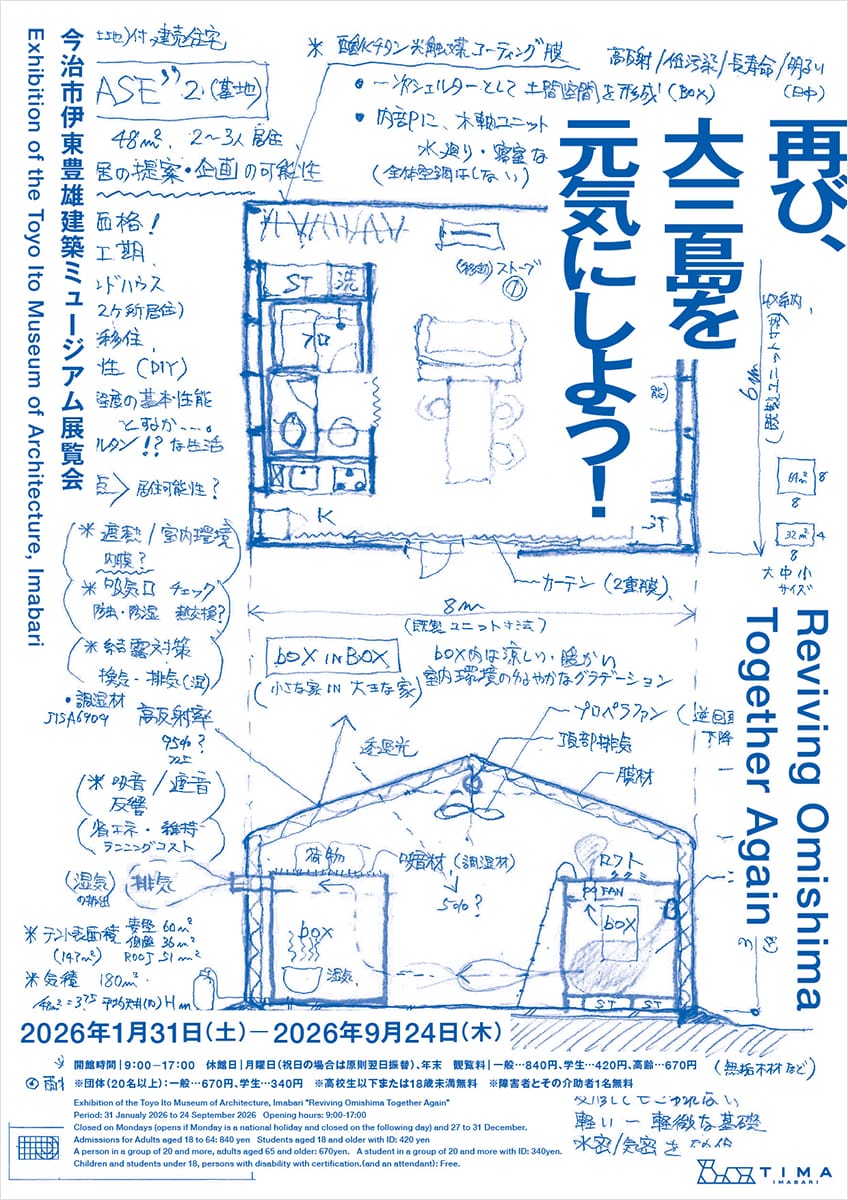 再び、
大三島を
元気にしよう！
Reviving Omishima
Together Again
今治市伊東豊雄建築ミュージアム展覧会
Exhibition of the Toyo Ito Museum of Architecture, Imabari
付 建売住宅
ASE" 2. (基地)
48m². 2〜3人居住
居の提案・企画の可能性
※ 酸化チタン光触媒コーティング膜
高反射/低汚染/長寿命/明るい
(日中)
• 一次シェルターとして 土間空間を形成 (BOX)
• 内部に、木軸ユニット
水廻り・寝室な
(全体空調はしない)
価格！
工期
ンドハウス
2ヶ所居住)
移住
性 (DIY)
の基本性能
とすれか…。
ルタン!?な生活
居住可能性？
ST
洗
フロ
K
(移動) ストーブ
ST
6m
(既製ユニット寸法)
64m²
8
8
32m²
4
8
大中小
サイズ
カーテン (2重膜)
8m
(既製ユニット寸法)
※ 遮熱/室内環境
内膜？
※ 吸気口 チェック
防虫・防湿 熱交換？
※ 結露対策
換気・排気 (湿)
• 調湿材
JIS A6909
高反射率
95%？
※ 吸音/遮音
反響
省エネ・維持
ランニングコスト
BOX IN BOX
(小さな家 IN 大きな家)
BOX内は涼しい・暖かい
室内環境のゆるやかなグラデーション
プロペラファン
下降
頂部排気
膜材
透過光
荷物
吸湿材 (調湿材)
50%？
ロフト
FAN
BOX
BOX
湿気
ST
ST
(湿気)
の排出
排気
※ テント表面積
(147m²)
妻壁 60m²
側壁 36m²
ROOF 51m²
※ 気積 180m³
2026年1月31日（土）— 2026年9月24日（木）
開館時間｜9：00−17：00　休館日｜月曜日（祝日の場合は原則翌日振替）、年末　観覧料｜一般…840円、学生…420円、高齢…670円
※団体（20名以上）：一般…670円、学生…340円　※高校生以下または18歳未満無料　※障害者とその介助者1名無料
(無垢木材など)
Exhibition of the Toyo Ito Museum of Architecture, Imabari "Reviving Omishima Together Again"
Period: 31 Janualy 2026 to 24 September 2026　Opening hours: 9:00-17:00
Closed on Mondays (opens if Monday is a national holiday and closed on the following day) and 27 to 31 December.
Admissions for Adults aged 18 to 64: 840 yen　Students aged 18 and older with ID: 420 yen
A person in a group of 20 and more, adults aged 65 and older: 670yen.　A student in a group of 20 with more with ID: 340yen.
Children and students under 18, persons with disability with certification.(and an attendant): Free.
軽い — 軽微な基礎
水密/気密を
TIMA
IMABARI